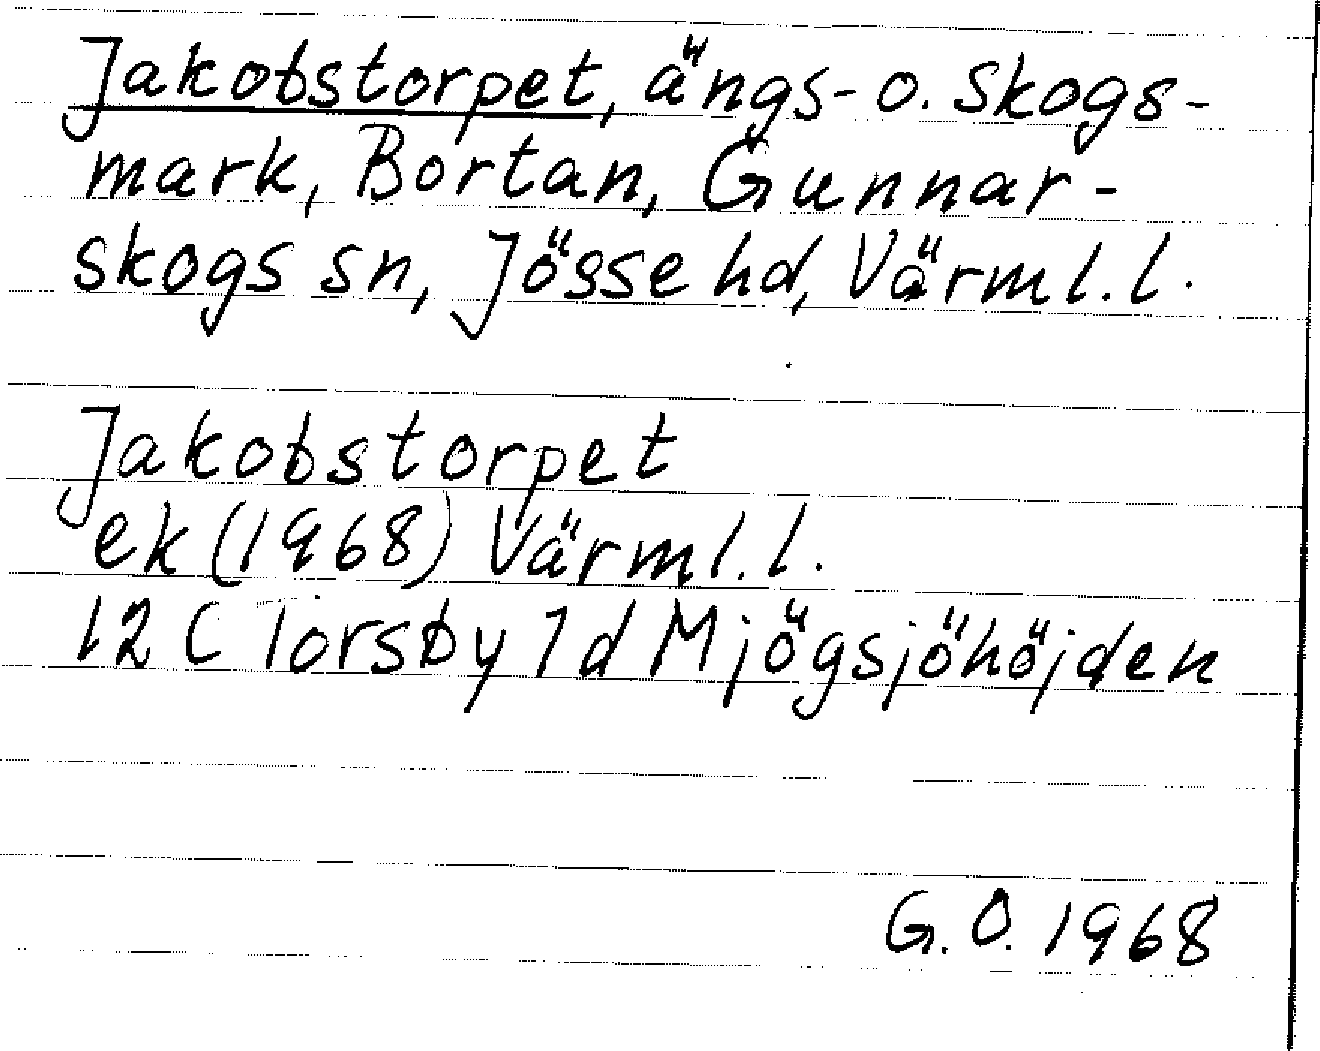 Jakobstorpet, ängs- o. skogs-
mark, Bortan, Gunnar-
skogs sn, Jösse hd, Värml. l.
Jakobstorpet
ek (1968) Värml. l.
12 C Torsby 1 d Mjögsjöhöjden
G. O. 1968